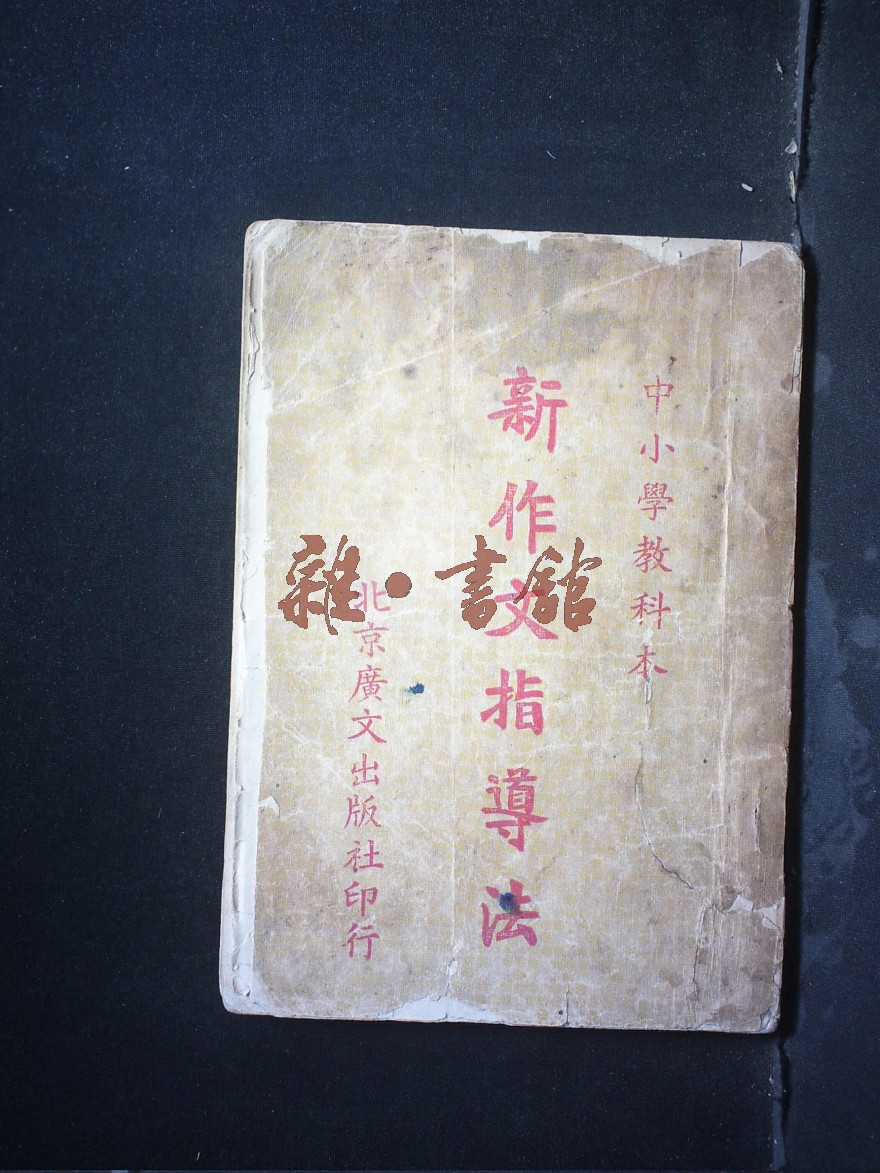 中小學教科本
新作文指導法
北京廣文出版社印行
雜·書舘